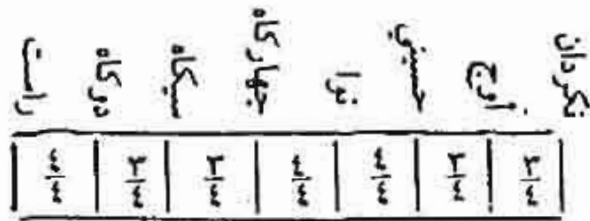 راست
دوكاه
سيكاه
جهاركاه
نوا
حسيني
أوج
كردان
٤/٤ ٣/٤ ٣/٤ ٤/٤ ٤/٤ ٣/٤ ٣/٤